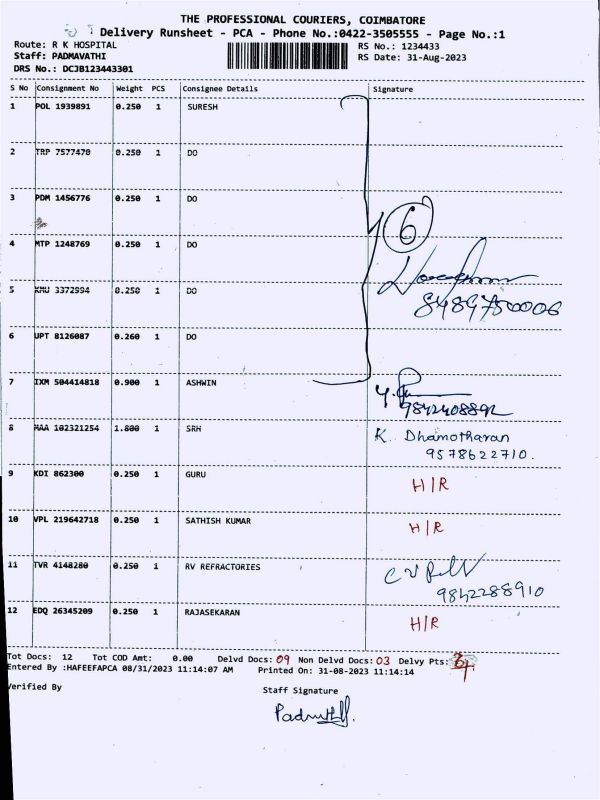 THE PROFESSIONAL COURIERS, COIMBATORE
Delivery Runsheet - PCA - Phone No.:0422-3505555 - Page No.:1
Route: R K HOSPITAL
RS No.: 1234433
Staff: PADMAVATHI
RS Date: 31-Aug-2023
DRS No.: DCJB123443301
S No Consignment No Weight PCS Consignee Details Signature
1 POL 1939891 0.250 1 SURESH
2 TRP 7577470 0.250 1 DO
3 PDM 1456776 0.250 1 DO
6
4 MTP 1248769 0.250 1 DO
5 KMU 3372994 0.250 1 DO
8489750006
6 UPT 8126087 0.260 1 DO
7 IXM 504414818 0.900 1 ASHWIN
9842408892
8 MAA 102321254 1.800 1 SRH K. Dhamotharan
9578622710.
9 KDI 862300 0.250 1 GURU H/R
10 VPL 219642718 0.250 1 SATHISH KUMAR H/R
11 TVR 4148280 0.250 1 RV REFRACTORIES
9842288910
12 EDQ 26345209 0.250 1 RAJASEKARAN H/R
Tot Docs: 12 Tot COD Amt: 0.00 Delvd Docs: 09 Non Delvd Docs: 03 Delvy Pts:
Entered By :HAFEEFAPCA 08/31/2023 11:14:07 AM Printed On: 31-08-2023 11:14:14
Verified By Staff Signature